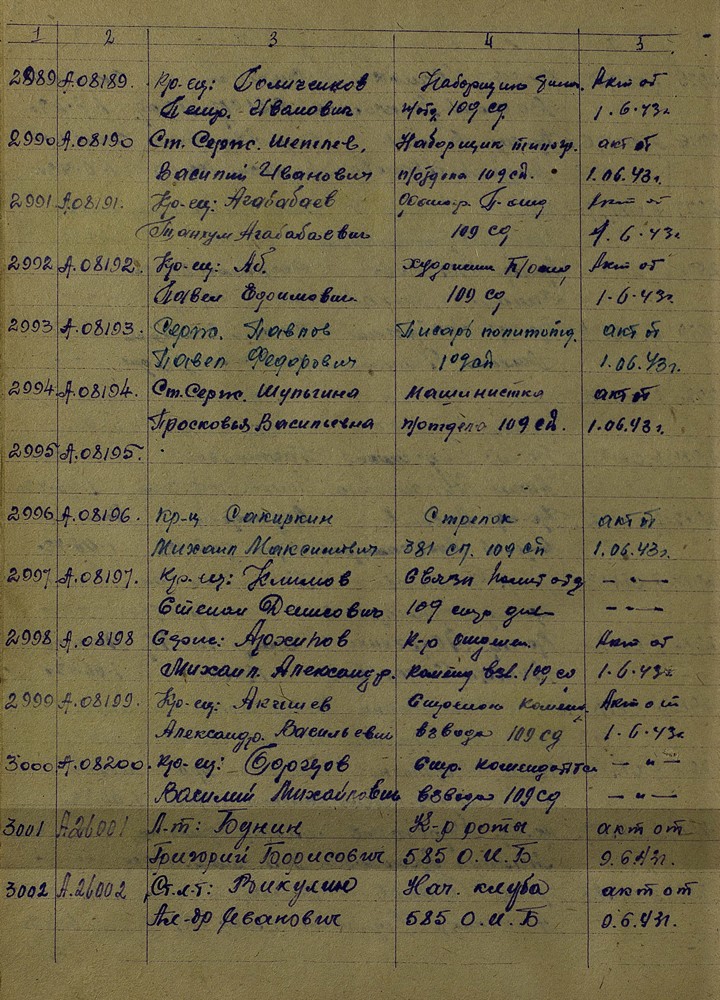 1 2 3 4 5
2989 А.08189. Кр-ец: Наборщик Акт от
Петр. Иванович п/отд 109 сд 1.6.43г
2990 А.08190 Ст. Серж. Шепелев, Наборщик типогр. акт от
Василий Иванович п/отдела 109 сд. 1.06.43г.
2991 А.08191. Кр-ец: Агабабаев Акт от
Танхум Агабабаевич 109 сд 1.6.43г
2992 А.08192. Кр-ец: Аб. художник Акт от
Павел Ефимович 109 сд 1.6.43г.
2993 А.08193. Серж. Павлов Писарь политотд. акт от
Павел Федорович 109 сд 1.06.43г.
2994 А.08194. Ст. Серж. Шульгина Машинистка акт от
Просковья Васильевна п/отдела 109 сд. 1.06.43г.
2995 А.08195.
2996 А.08196. Кр-ц Сакиркин Стрелок акт от
Михаил Максимович 381 сп. 109 сд 1.06.43г.
2997 А.08197. Кр-ец: Климов Связн политотд — " —
Степан Денисович 109 стр див — " —
2998 А.08198 Серж: Архипов К-р отделен. Акт от
Михаил Александр. коменд взв. 109 сд 1.6.43г
2999 А.08199. Кр-ец: Акт от
Александр. Васильевич взвода 109 сд 1.6.43г
3000 А.08200. Кр-ец: Стр. комендантск — " —
Василий Михайлович взвода 109 сд — " —
3001 А.26001 Л-т: Бунин К-р роты акт от
Григорий Борисович 585 О.И.Б 9.6.43г.
3002 А.26002 Ст.л-т: Викулин Нач. клуба акт от
Ал-др Иванович 585 О.И.Б 9.6.43г.